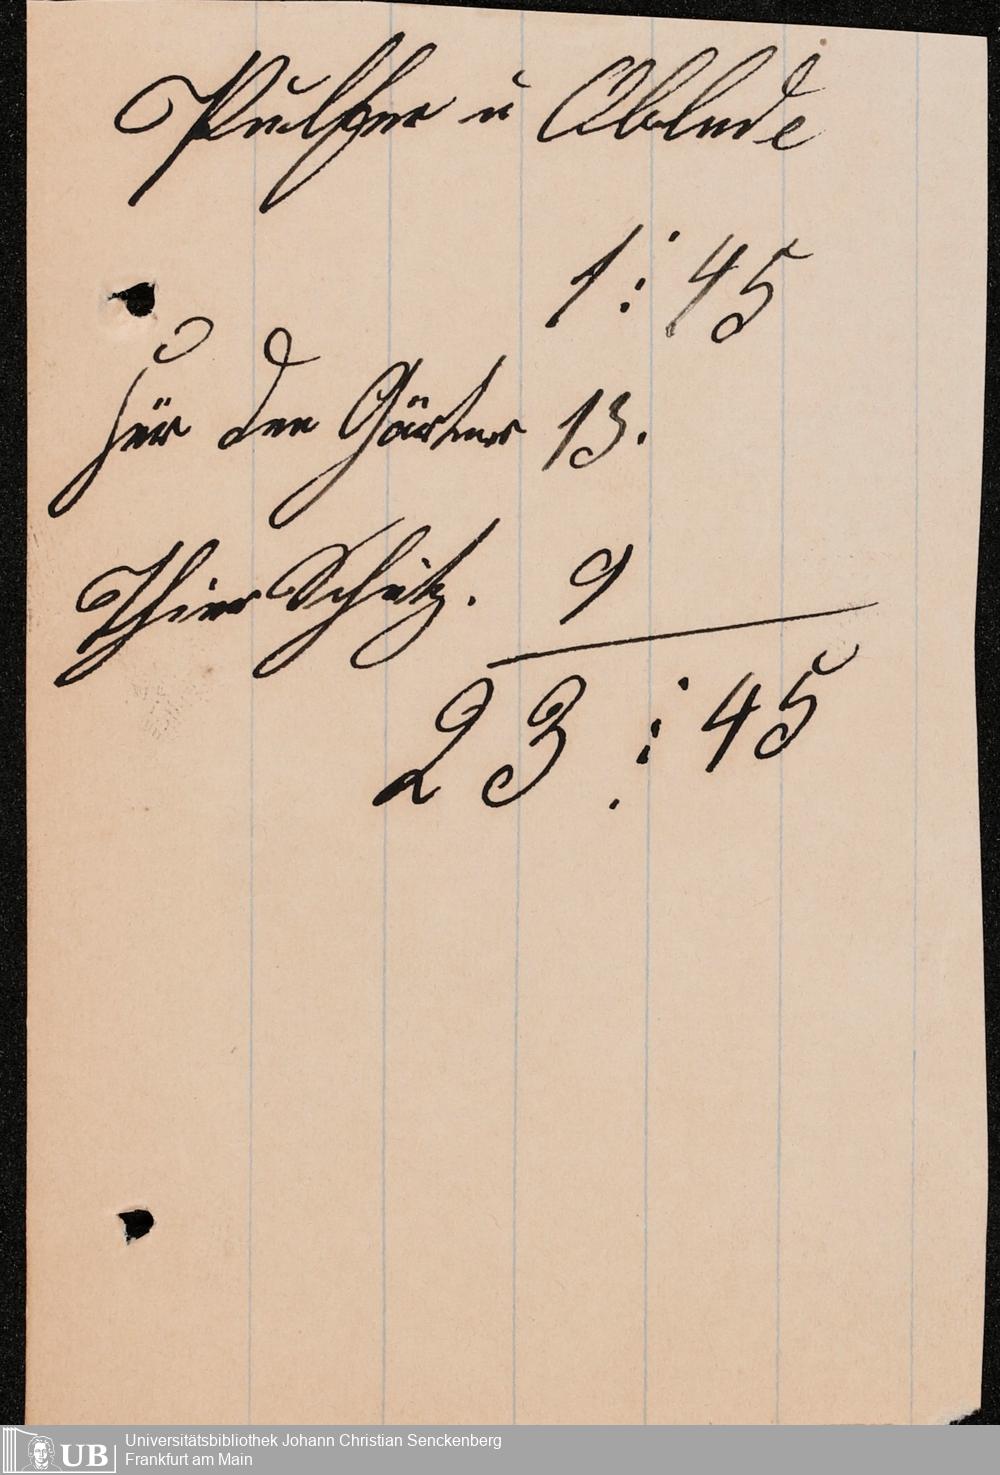 Pulfer u Oblade
1:45
Für den Gärtner 13.
Thier Schutz. 9
23:45
UB
Universitätsbibliothek Johann Christian Senckenberg
Frankfurt am Main